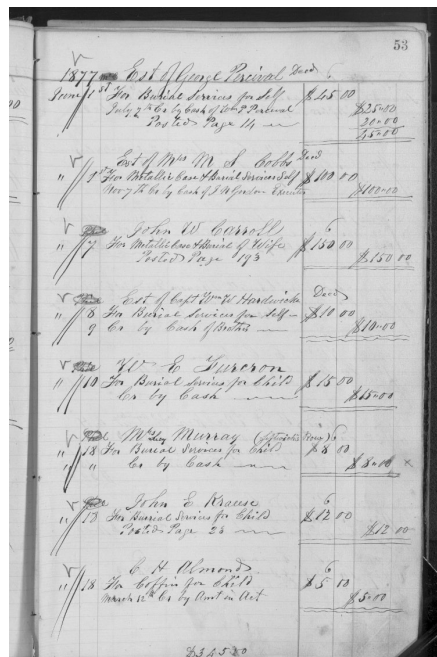 53
1877 Est of George Percival Decd 6
June 1st For Burial Services for Self $45 00
July 7th Cr by Cash of Percival $25=00
Posted Page 14 20=00
45=00
Est of Mrs M. S. Cobbs Decd
" 1st For Metallic Case & Burial Services Self $100 00
Nov 7th Cr by Cash of Executor $100=00
John W Carroll 6
" 7 For Metallic Case & Burial of Wife $150 00
Posted Page 193 $150 00
Est of Capt Hardwicke Decd
" 8 For Burial Services for Self $10 00
9 Cr by Cash of $10=00
W E Furcron
" 10 For Burial Services for Child $15 00
Cr by Cash $15=00
Murray 6
" 13 For Burial Services for Child $8 00
" " Cr by Cash $8=00 x
John E. Krause 6
" 13 For Burial Services for Child $12 00
Posted Page 23 $12 00
E H Almond 6
" 18 For Coffin for Child $5 00
March 12th Cr by Amt in Act $5=00
$345 00